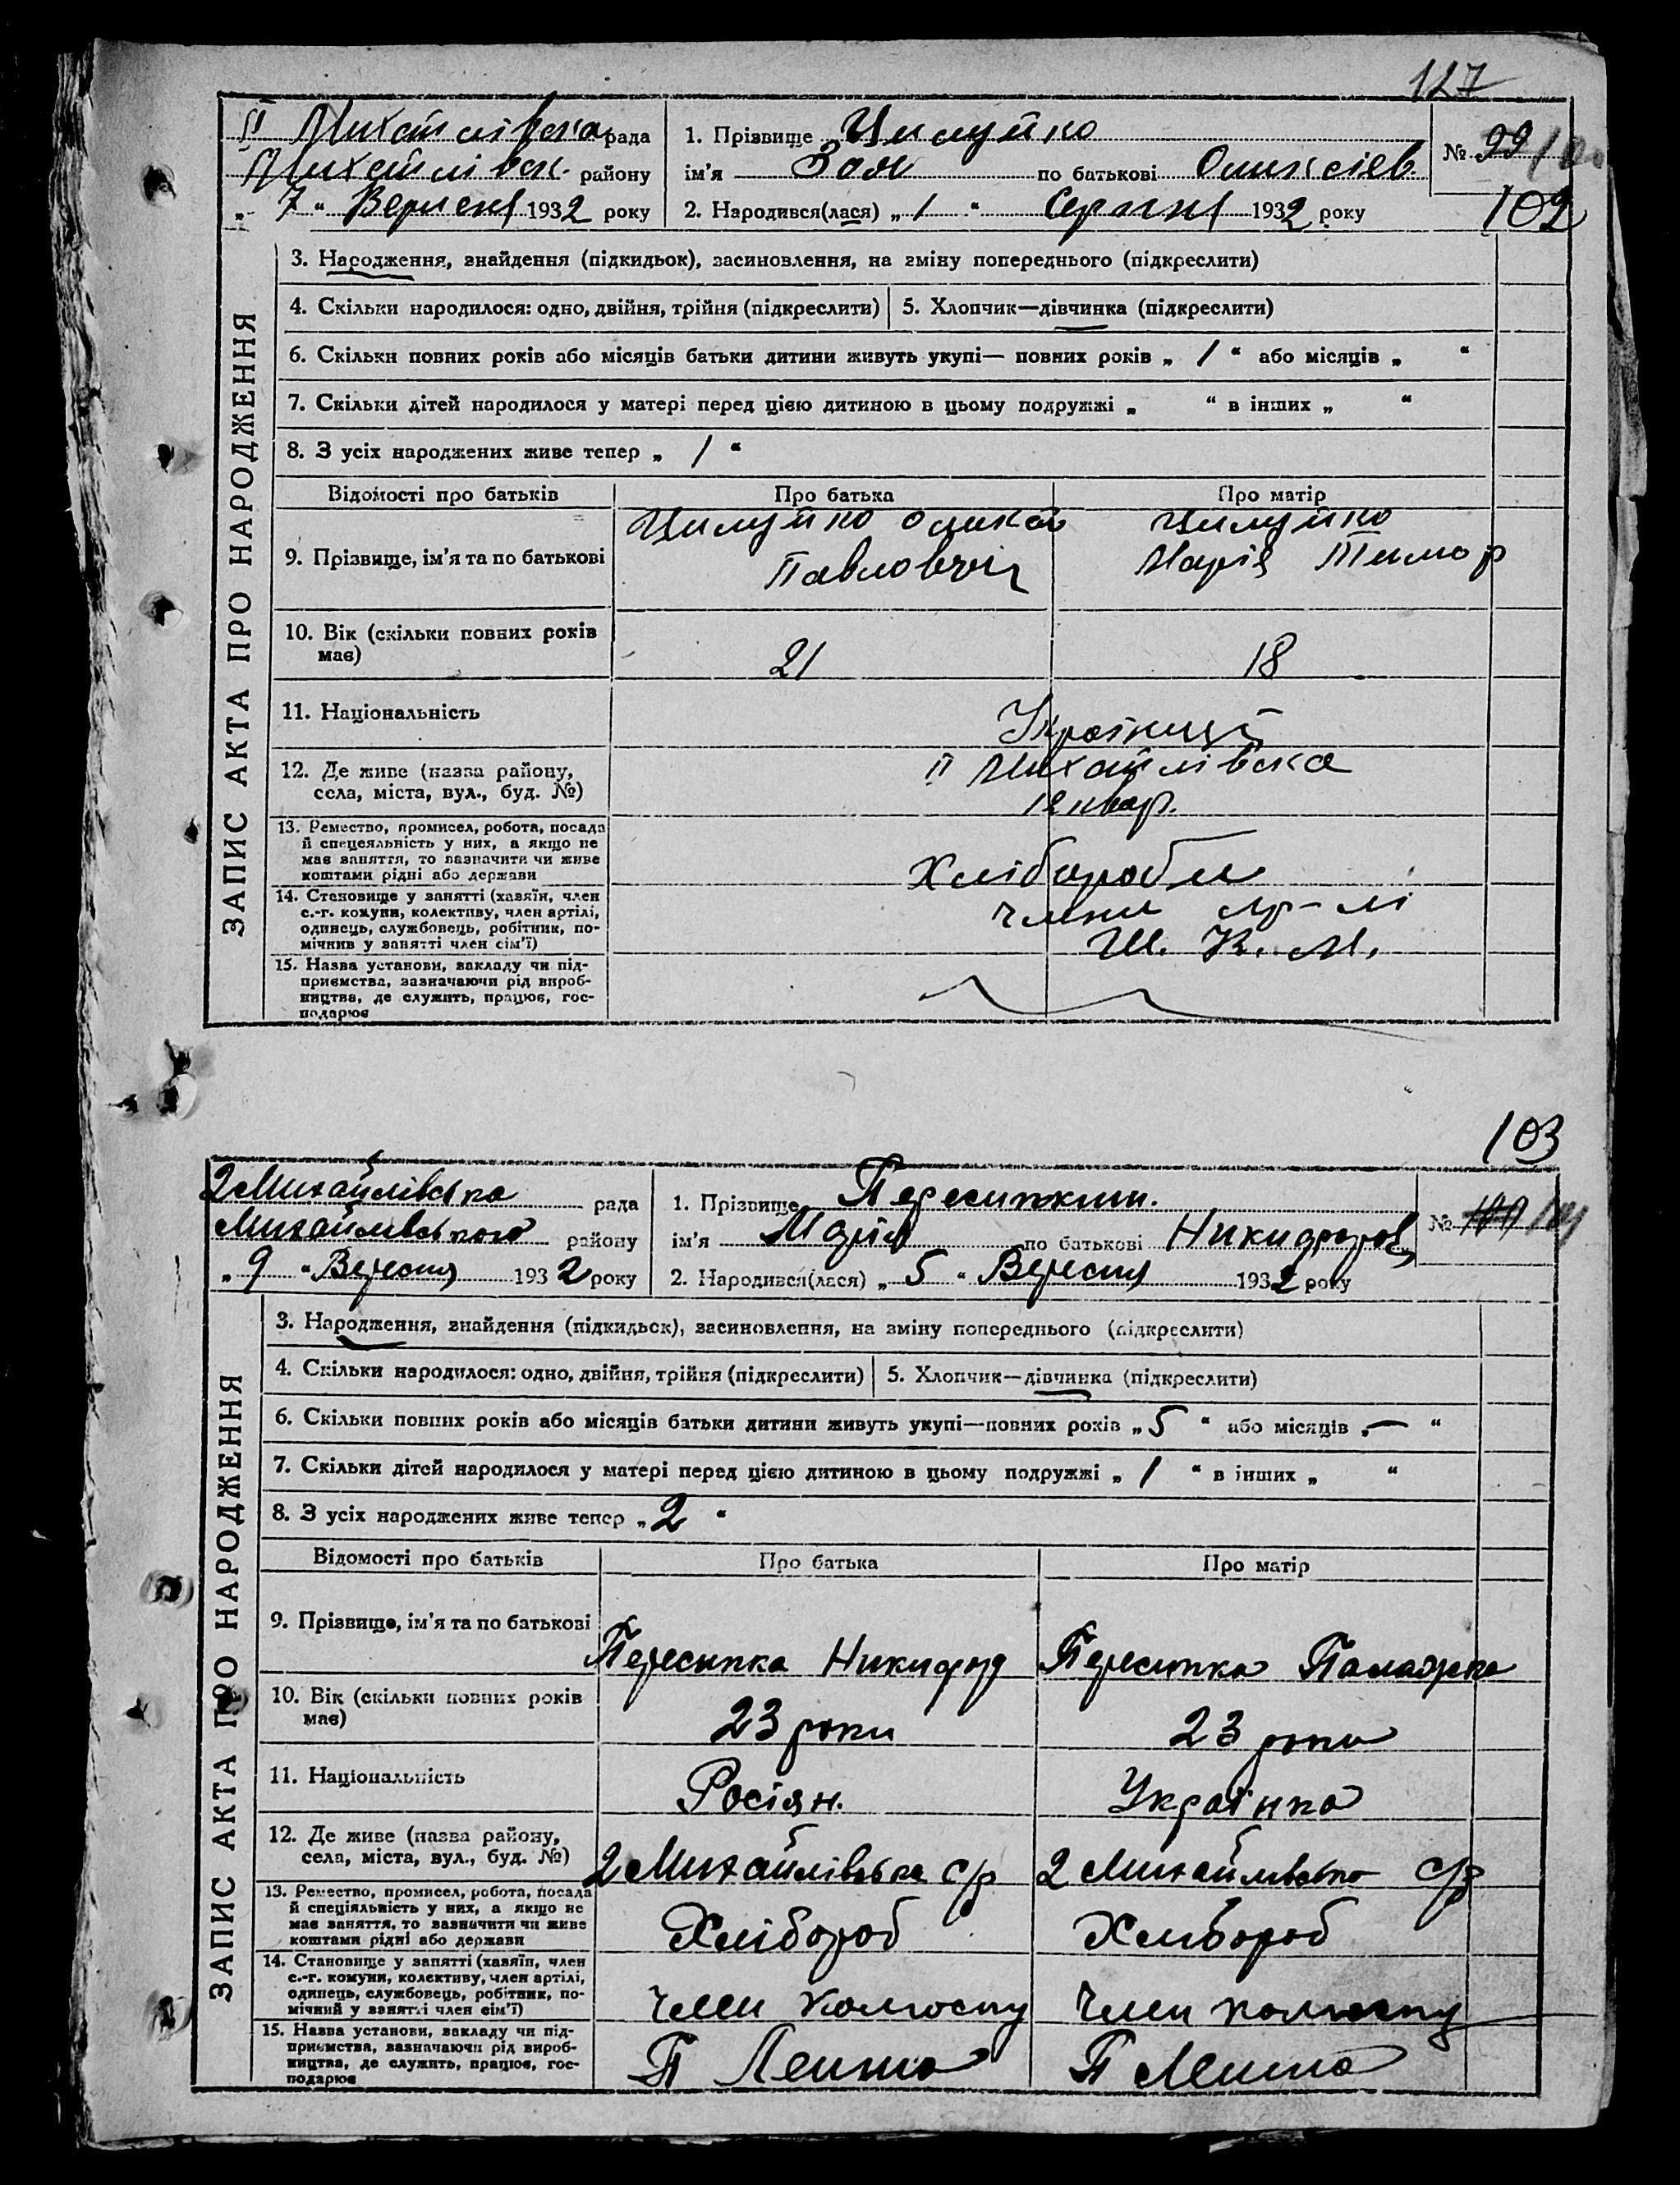 127
II Михайлівска рада
Михайлівск. району
„ 7 “ Вересня 1932 року
1. Прізвище Цилуйко
ім'я Зоя по батькові Олексіев.
2. Народився(лася) „ 1 “ Серпня 1932 року
№ 99
102
ЗАПИС АКТА ПРО НАРОДЖЕННЯ
3. Народження, знайдення (підкидьок), засиновлення, на зміну попереднього (підкреслити)
4. Скільки народилося: одно, двійня, трійня (підкреслити) 5. Хлопчик—дівчинка (підкреслити)
6. Скільки повних років або місяців батьки дитини живуть укупі— повних років „ 1 “ або місяців „ “
7. Скільки дітей народилося у матері перед цією дитиною в цьому подружжі „ “ в інших „ “
8. З усіх народжених живе тепер „ 1 “
Відомості про батьків Про батька Про матір
9. Прізвище, ім'я та по батькові
Цилуйко Цилуйко
Павлович Марія Тимоф
10. Вік (скільки повних років
має)
21 18
11. Національність
Українці
12. Де живе (назва району,
села, міста, вул., буд. №)
II Михайлівска
13. Ремество, промисел, робота, посада
й спеціяльність у них, а якщо не
має заняття, то зазначити чи живе
коштами рідні або держави
Хлібороби
14. Становище у занятті (хазяїн, член
с.-г. комуни, колективу, член артілі,
одинець, службовець, робітник, по-
мічник у занятті член сім'ї)
члени ар-лі
Ш. К. М.
15. Назва установи, закладу чи під-
приємства, зазначаючи рід вироб-
ництва, де служить, працює, гос-
подарює
103
2 Михайлівська рада
Михайлівського району
„ 9 “ Вересня 1932 року
1. Прізвище Пересипкин.
ім'я Марія по батькові Никифоров
2. Народився(лася) „ 5 “ Вересня 1932 року
№
ЗАПИС АКТА ПРО НАРОДЖЕННЯ
3. Народження, знайдення (підкидьок), засиновлення, на зміну попереднього (підкреслити)
4. Скільки народилося: одно, двійня, трійня (підкреслити) 5. Хлопчик—дівчинка (підкреслити)
6. Скільки повних років або місяців батьки дитини живуть укупі—повних років „ 5 “ або місяців „ — “
7. Скільки дітей народилося у матері перед цією дитиною в цьому подружжі „ 1 “ в інших „ “
8. З усіх народжених живе тепер „ 2 “
Відомості про батьків Про батька Про матір
9. Прізвище, ім'я та по батькові
Пересипка Никифор Пересипка Палажка
10. Вік (скільки повних років
має)
23 роки 23 роки
11. Національність
Росіян. Українка
12. Де живе (назва району,
села, міста, вул., буд. №)
2 Михайлівська с/р 2 Михайлівська с/р
13. Ремество, промисел, робота, посада
й спеціяльність у них, а якщо не
має заняття, то зазначити чи живе
коштами рідні або держави
Хлібороб Хлібороб
14. Становище у занятті (хазяїн, член
с.-г. комуни, колективу, член артілі,
одинець, службовець, робітник, по-
мічний у занятті член сім'ї)
Член колгоспу Член колгоспу
15. Назва установи, закладу чи під-
приємства, зазначаючи рід вироб-
ництва, де служить, працює, гос-
подарює
П Леніна П Леніна